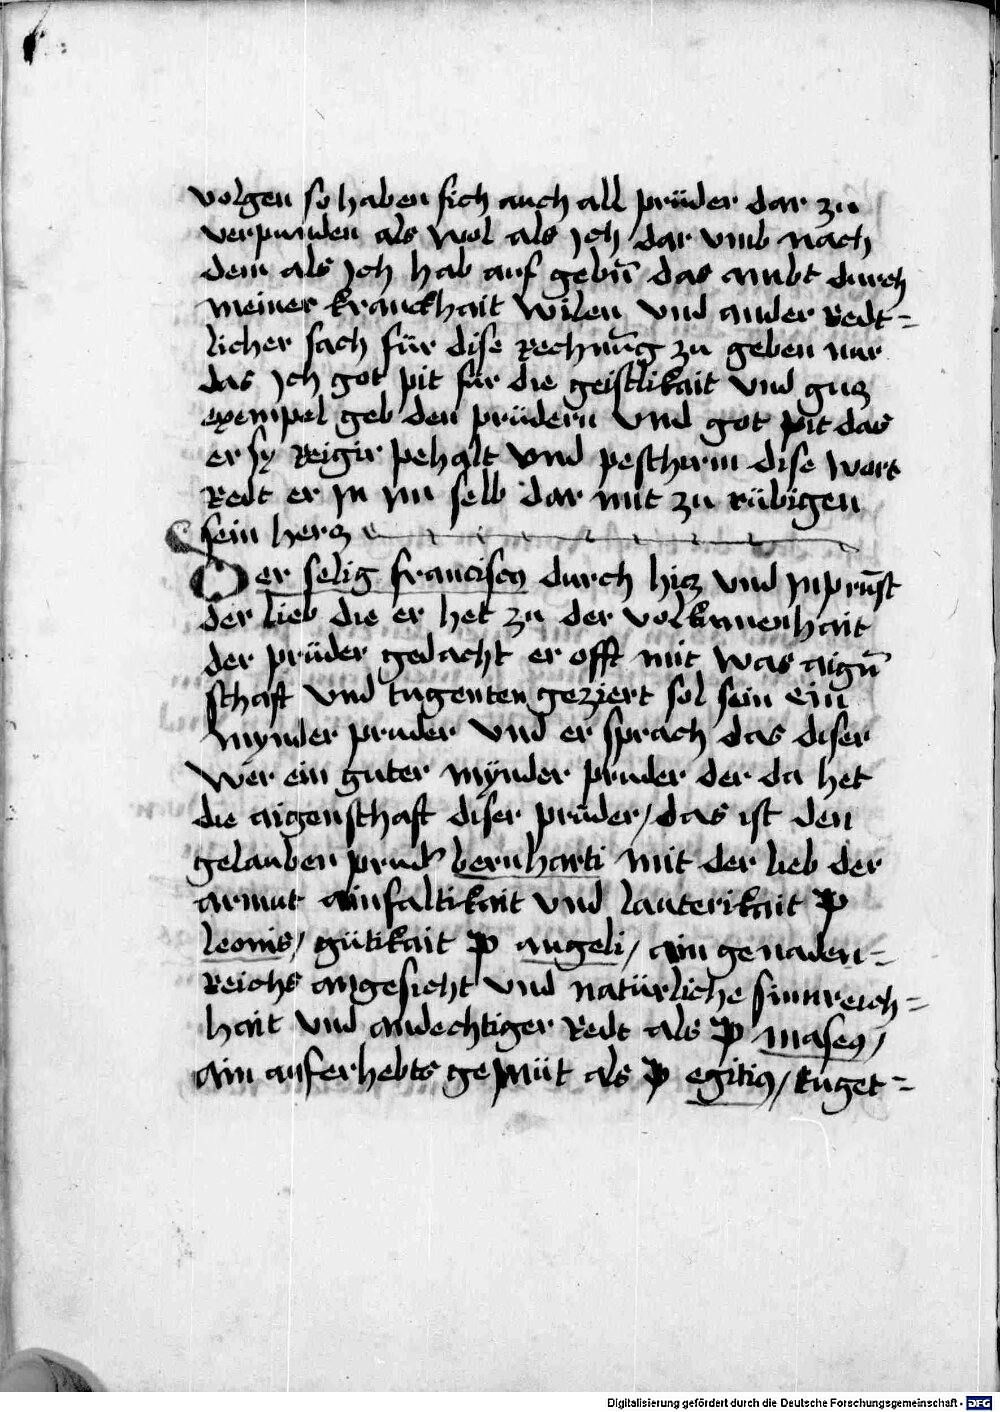 volgen so haben sich auch all prüder dar zu
verpunden als wol als jch dar vmb nach
dem als jch hab auf gebn̄ das ambt durch
meiner kranckhait willen vnd ander Redt=
licher sach für dise Rechnūg zu geben nur
das jch got pit für die geistlikait vnd gucz
exempel geb den prüdern vnd got pit das
er sy Reigir pehalt vnd peschirm dise wort
Redt er jn jm selb dar mit zu rübigen
sein hercz
Der selig franciscꝯ durch hicz vnd jnprūst
der lieb die er het zu der volkumenhait
der prüder gedacht er offt mit was aign̄
schaft vnd tugenten gezjert sol sein ein
mynder pruder vnd er sprach das diser
wer ein guter mÿnder pruder der da het
die aigenschaft diser prüder / das ist den
gelauben prud' bernharti mit der lieb der
armut ainfaltikait vnd lauterikait p
leonis / gütikait p angeli / ain genaden=
Reichs angesicht vnd natürliche sinnreich=
hait vnd andechtiger Redt als p maseꝯ /
ain auferhebts gemüt als p egitiꝯ / tuget=
Digitalisierung gefördert durch die Deutsche Forschungsgemeinschaft - DFG